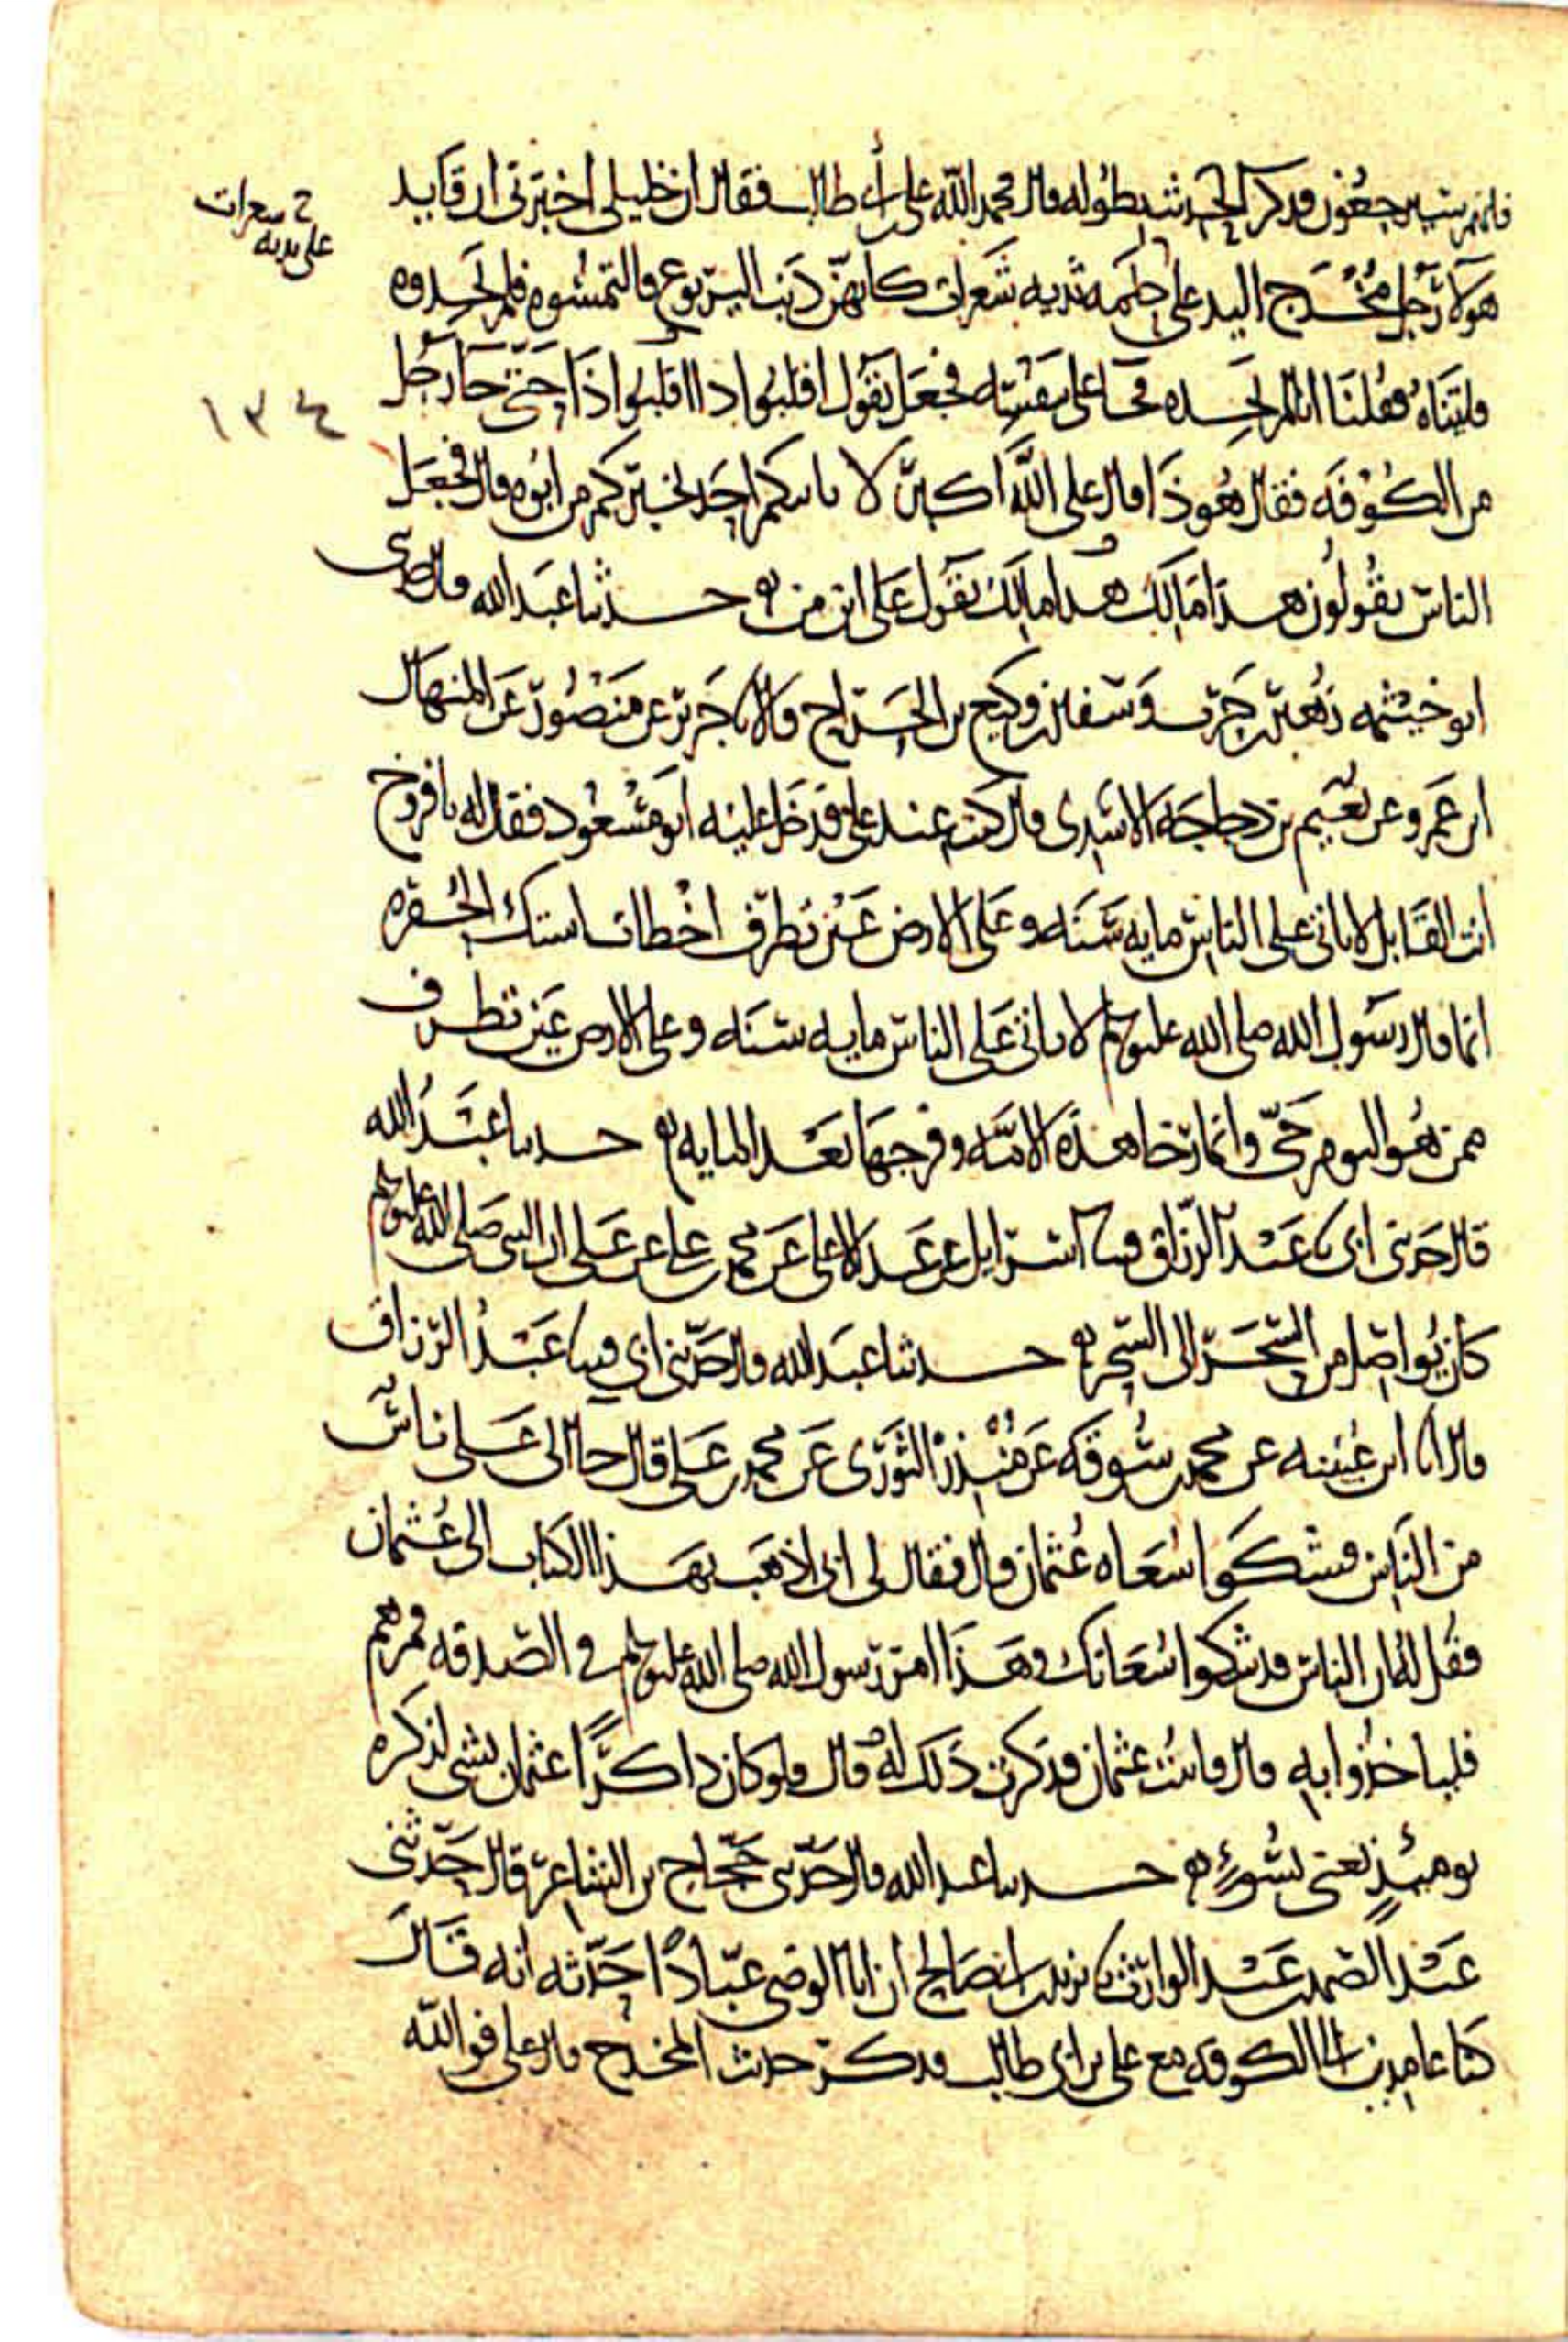 فانهم سيرجعون فذكر الحديث بطوله قال فحمد الله على بن أبي طالب فقال ان خليلي اخبرني ان قايد
هولا رجل مخدج اليد على حلمه ثديه شعرات كانهن ذنب اليربوع فالتمسوه فلم يجدوه
فاتيناه فقلنا انا لم نجده فجا على بنفسه فجعل يقول اقلبوا ذا اقلبوا ذا حتى جا رجل
من الكوفه فقال هو ذا قال على الله اكبر لا ياتيكم احد يخبركم من ابوه قال فجعل
الناس يقولون هذا مالك هذا مالك يقول على ابن من حدثنا عبد الله قال حدثنى
ابو خيثمه زهير بن حرب وسفين بن وكيع بن الجراح قالا نا جرير عن منصور عن المنهال
ابن عمرو عن نعيم بن دجاجه الاسدى قال كنت عند على فدخل عليه ابو مسعود فقال له يا فروخ
انت القايل لا ياتى على الناس مايه سنه وعلى الارض عين تطرف اخطات استك الحفره
انما قال رسول الله صلى الله عليه وسلم لا ياتى على الناس مايه سنه وعلى الارض عين تطرف
ممن هو اليوم حى وانما رخا هذه الامه وفرجها بعد المايه حدثنا عبد الله
قال حدثنى ابى نا عبد الرزاق قثنا اسرايل عن عبد الاعلى عن محمد بن على عن على ان النبى صلى الله عليه وسلم
كان يواصل من السحر الى السحر حدثنا عبد الله قال حدثنى ابي قثنا عبد الرزاق
قال انا ابن عيينه عن محمد بن سوقه عن منذر الثورى عن محمد بن على قال جا الى على ناس
من الناس فشكوا سعاه عثمان قال فقال لى ابى اذهب بهذا الكتاب الى عثمان
فقل له ان الناس قد شكوا سعاتك وهذا امر رسول الله صلى الله عليه وسلم فى الصدقه فمرهم
فلياخذوا به قال فاتيت عثمان فذكرت ذلك له قال فلو كان ذاكرا عثمان بشى لذكره
يوميذ يعنى بسوء حدثنا عبد الله قال حدثنى حجاج بن الشاعر قال حدثنى
عبد الصمد بن عبد الوارث نا يزيد بن ابى صالح ان ابا الوضى عبادا حدثه انه قال
كنا عامدين الى الكوفه مع على بن ابى طالب فذكر حديث المخدج قال على فوالله
شعرات
على يديه
١٣٤